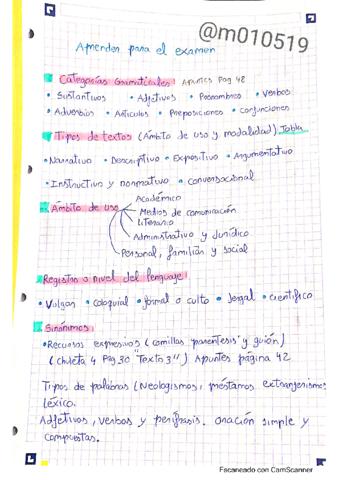 CamScanner
@m010519
Aprender para el examen
Categorías Gramaticales: Apuntes Pag 48
• Sustantivos • Adjetivos • Pronombres • Verbos
• Adverbios • Artículos • Preposiciones • conjunciones
Tipos de textos (Ámbito de uso y modalidad) Tabla
• Narrativo • Descriptivo • Expositivo • Argumentativo
• Instructivo y normativo • conversacional
• Ámbito de uso
Académico
Medios de comunicación
Literario
Administrativo y Jurídico
Personal, familiar y social
Registro o nivel del lenguaje:
• Vulgar • coloquial • formal o culto • Jergal • científico
Sinónimos:
• Recursos expresivos (comillas paréntesis y guión)
(chuleta 4 Pag 30 "Texto 3") Apuntes página 42
Tipos de palabras (Neologismos, préstamos extranjerismos
Léxico.
Adjetivos, verbos y perífrasis. oración simple y
compuestas.
Escaneado con CamScanner